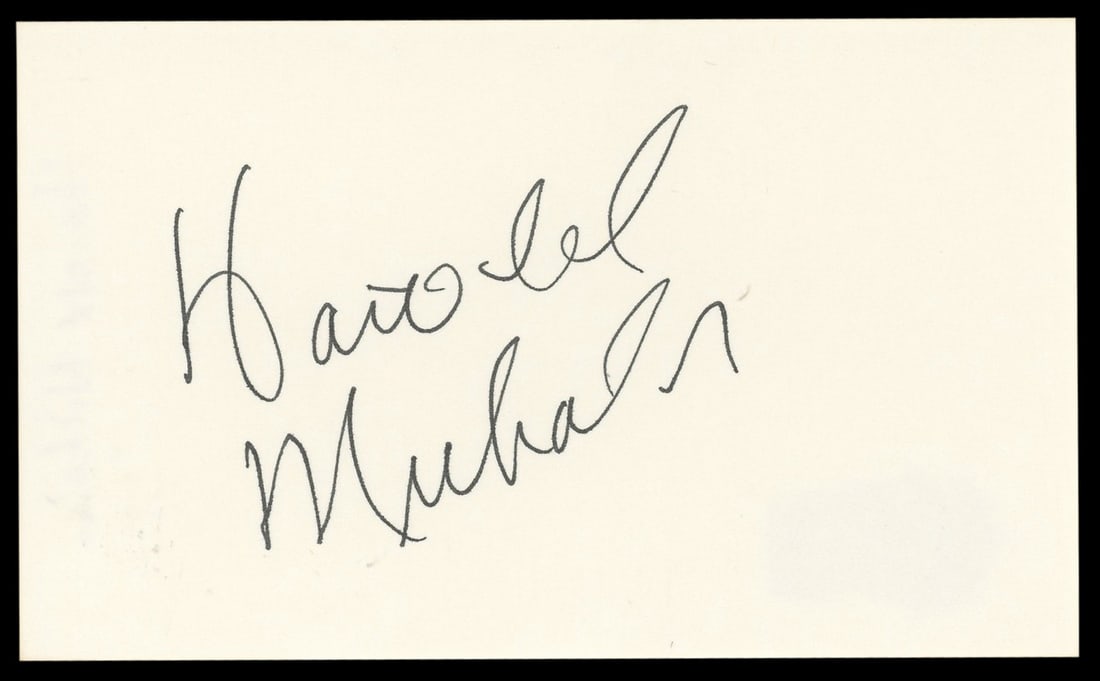 Harold
Michaels